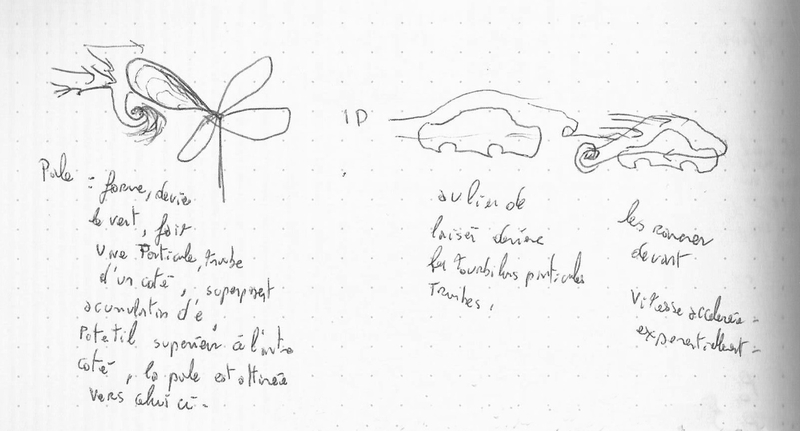 Pale : forme, devie
le vent, fait
une Particule, trombe
d'un coté, superposent
acumulation d'é
Potetil superieur à l'autre
coté, la pale est attirée
vers celui ci.
1D
au lieu de
laisser derière
les tourbillons particules
Trombes,
les ramener
devant
Vitesse acceleree
exponentiellement